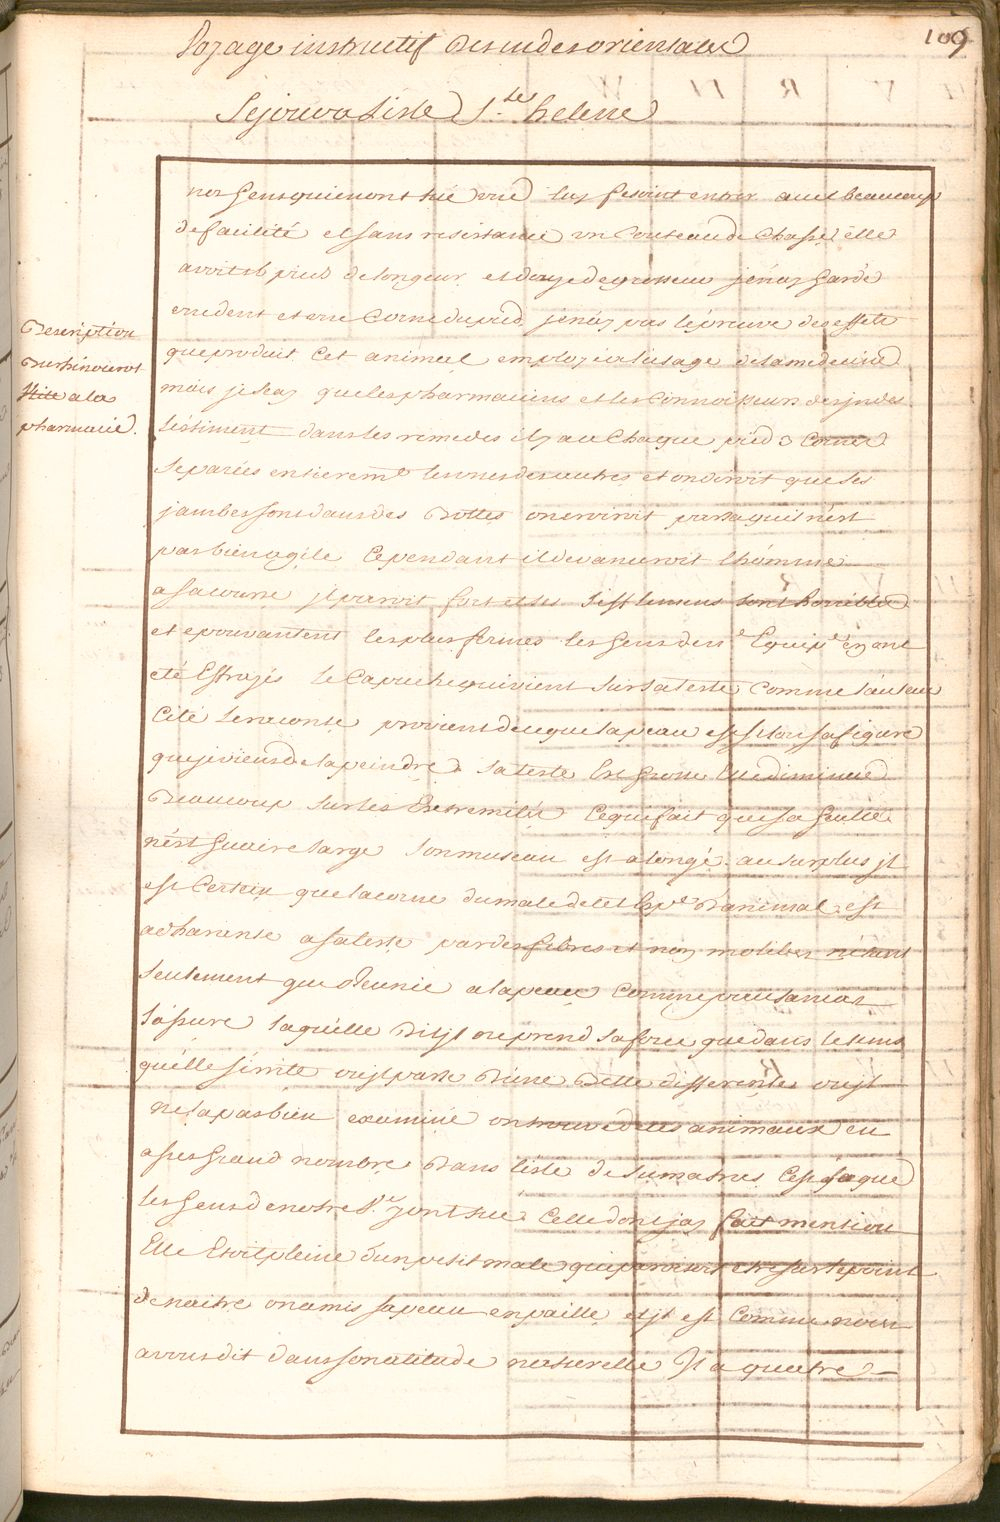 109
Voyage instructif Des indes orientales
Sejour a L'isle S.te helene
Description
Du rhinoceros
utile a la
pharmacie.
nos gens qui en ont tué une luy fesoint entrer avec beaucoup
de facilité et sans resistance un Couteau de Chasse, elle
avoit 6 pieds de longeur et douze de grosseur j'en ay gardé
une dent et une Corne du pied, j'enay pas l'épreuve des effets
que produit Cet animal employé a l'usage de la medecine
mais je scay que les pharmaciens et les Connoisseurs des jndes
l'estiment dans les remedes il y a au Chaque pied 3 Cornes
separées entierem.t les unes des autres, et on diroit que ses
jambes sont dans des Bottes on croiroit par la quil n'est
pas bien agile Cependant il devanceroit l'homme
a sa course jl paroit fort et ses siflemens sont horribles
et epouvantent les plus fermes les gens de n.e Equip.e en ont
eté Efrayés le Capuche qui vient sur sa teste Comme l'auteur
Cité le raconte provient de ce que la peau est selon sa figure
que je viens de la peindre sa teste Est grosse Elle diminue
Beaucoup sur les Extremités Ce qui fait que sa gueule
n'est guaire large son museau est alongé au surplus jl
est Certain que la corne du male de cet Esp.e D'animal est
adharente a sa teste par des fibres et non mobiles n'étant
seulement que Reunie a la peau Comme
l'assure laquelle Dit jl ne prend sa force que dans le tems
qu'elle s'irrite ou jl parle D'une Bette differente ou jl
ne la pas bien examiné on trouve de ces animaux en
asses grand nombre Dans l'isle de sumatra, C'est la que
les gens de notre V.au y ont tué Celle dont jay fait mention
Elle Etoit pleine d'un petit male qui paroissoit etre sur le point
de naitre on a mis sa peau en paille et jl est Comme nous
avons dit dans son atitude naturelle Jl a quatre